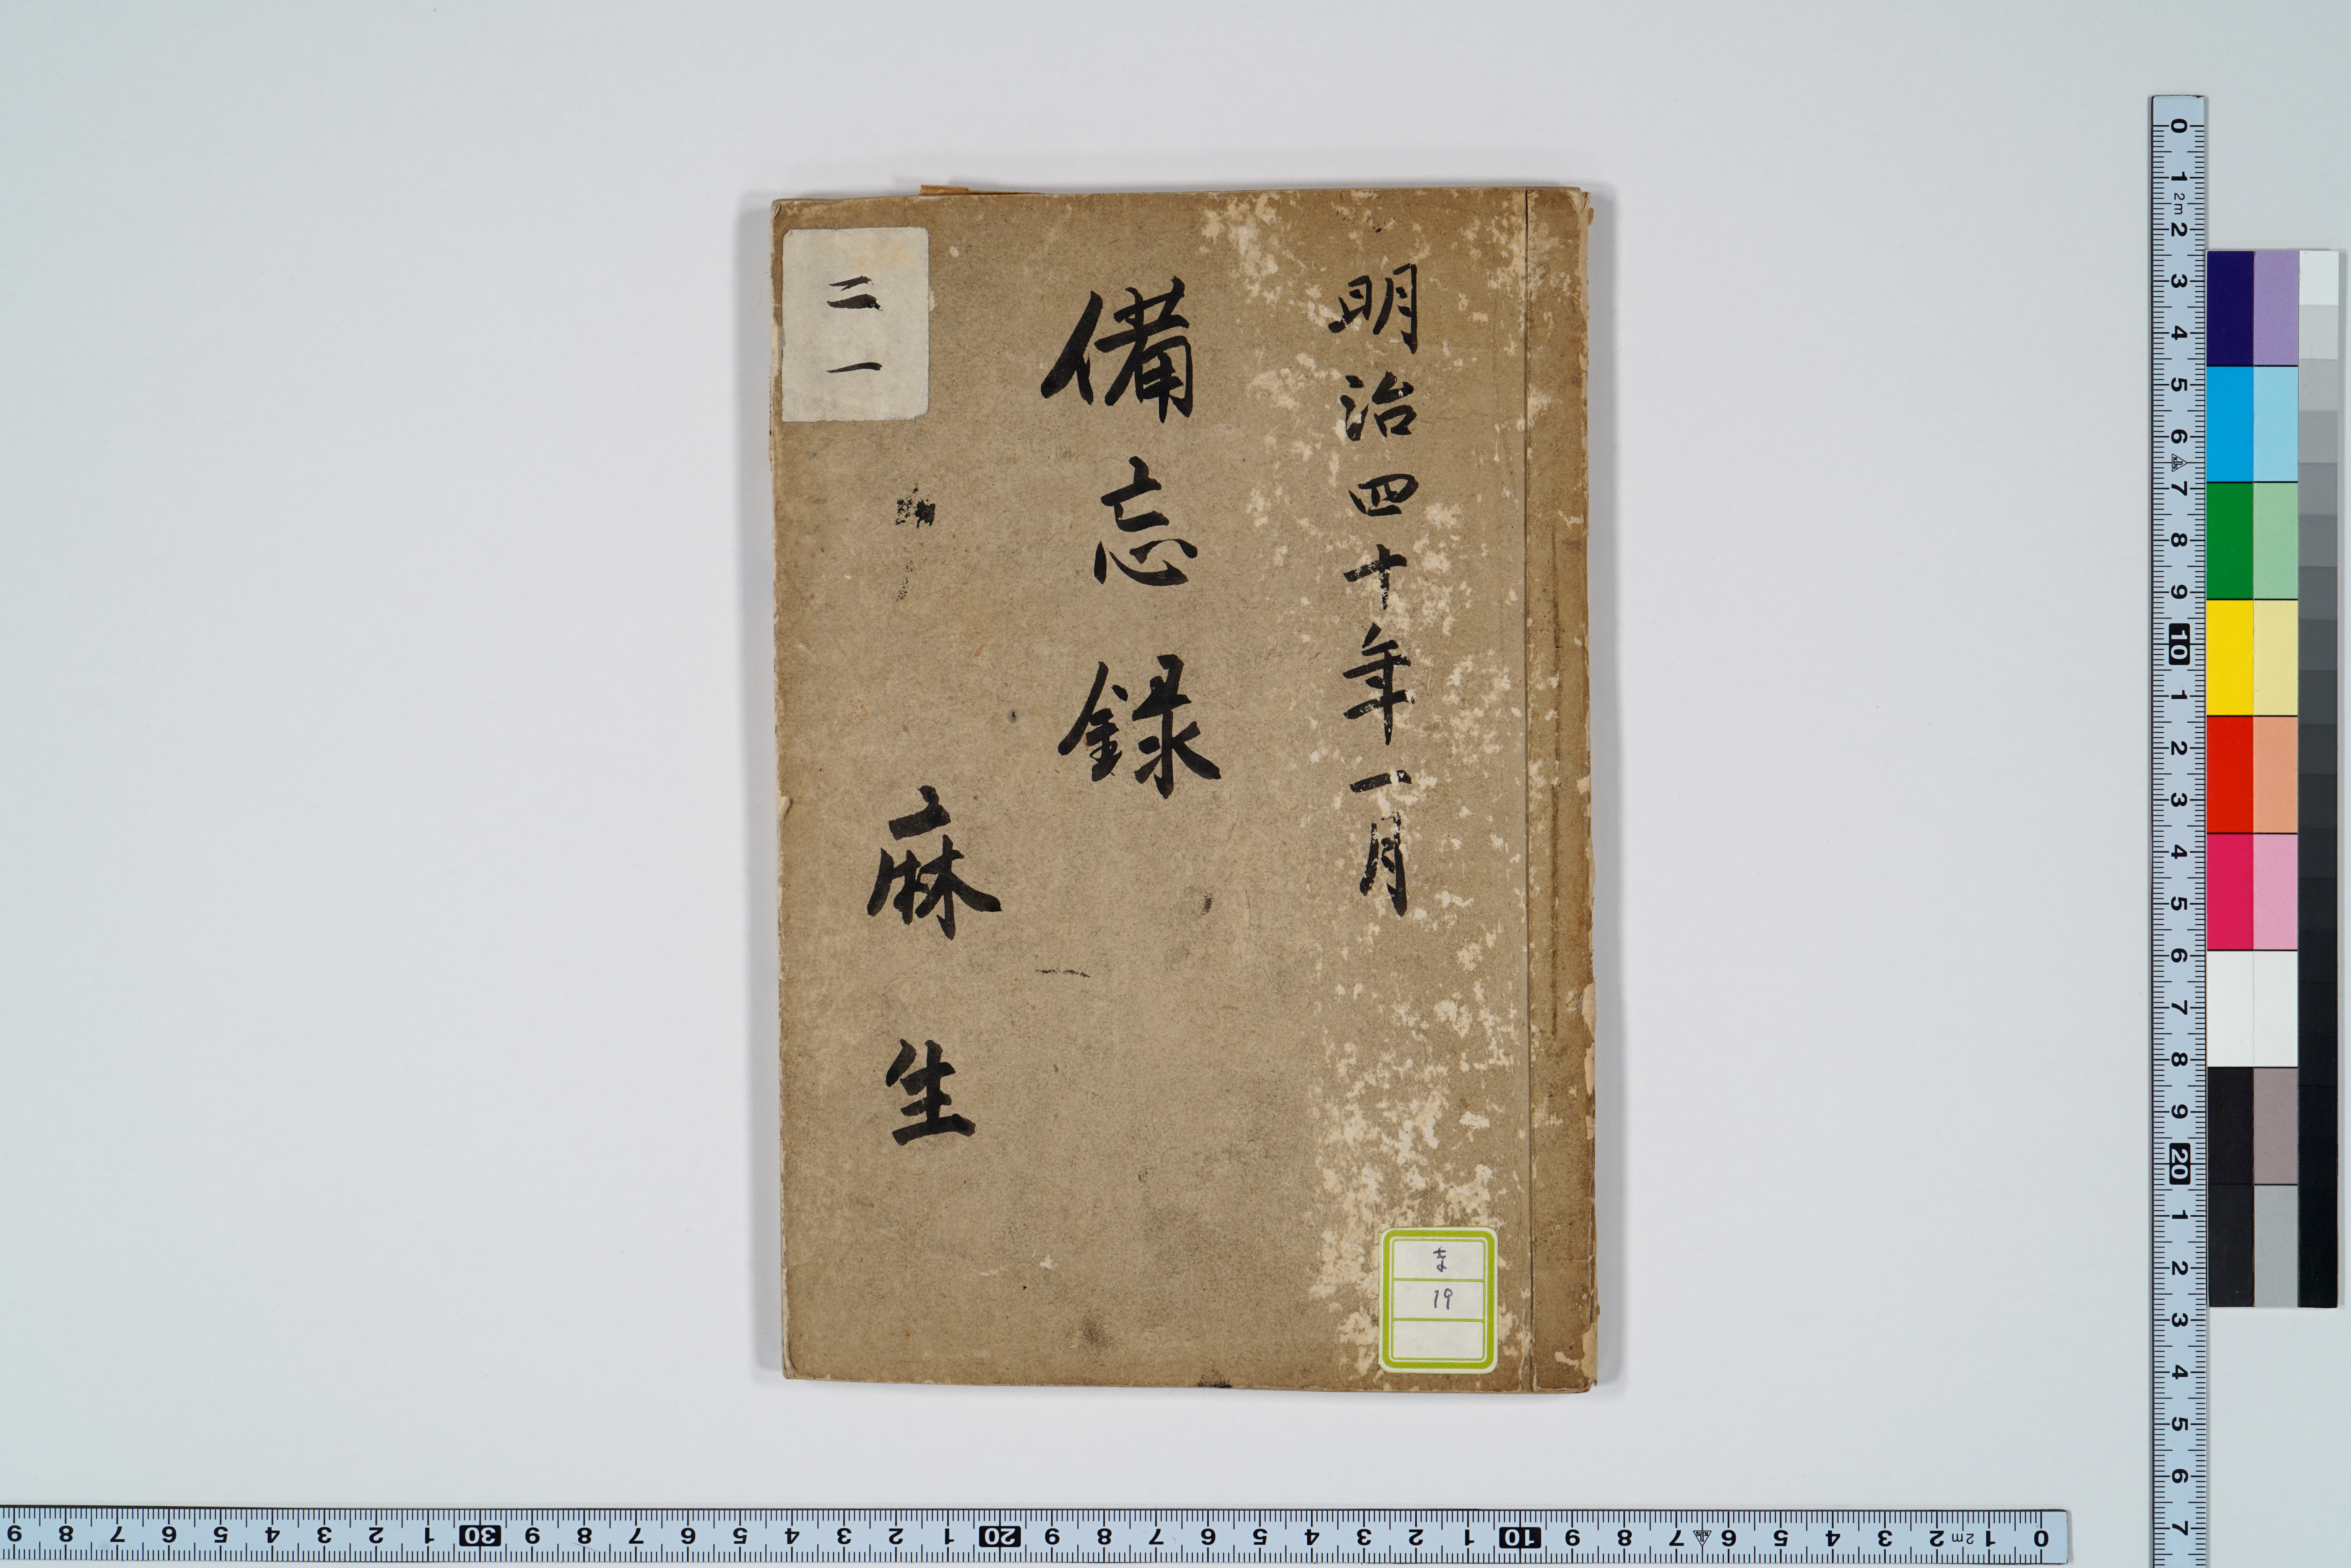 明治四十年一月
備忘録
麻生
二一
ま
19